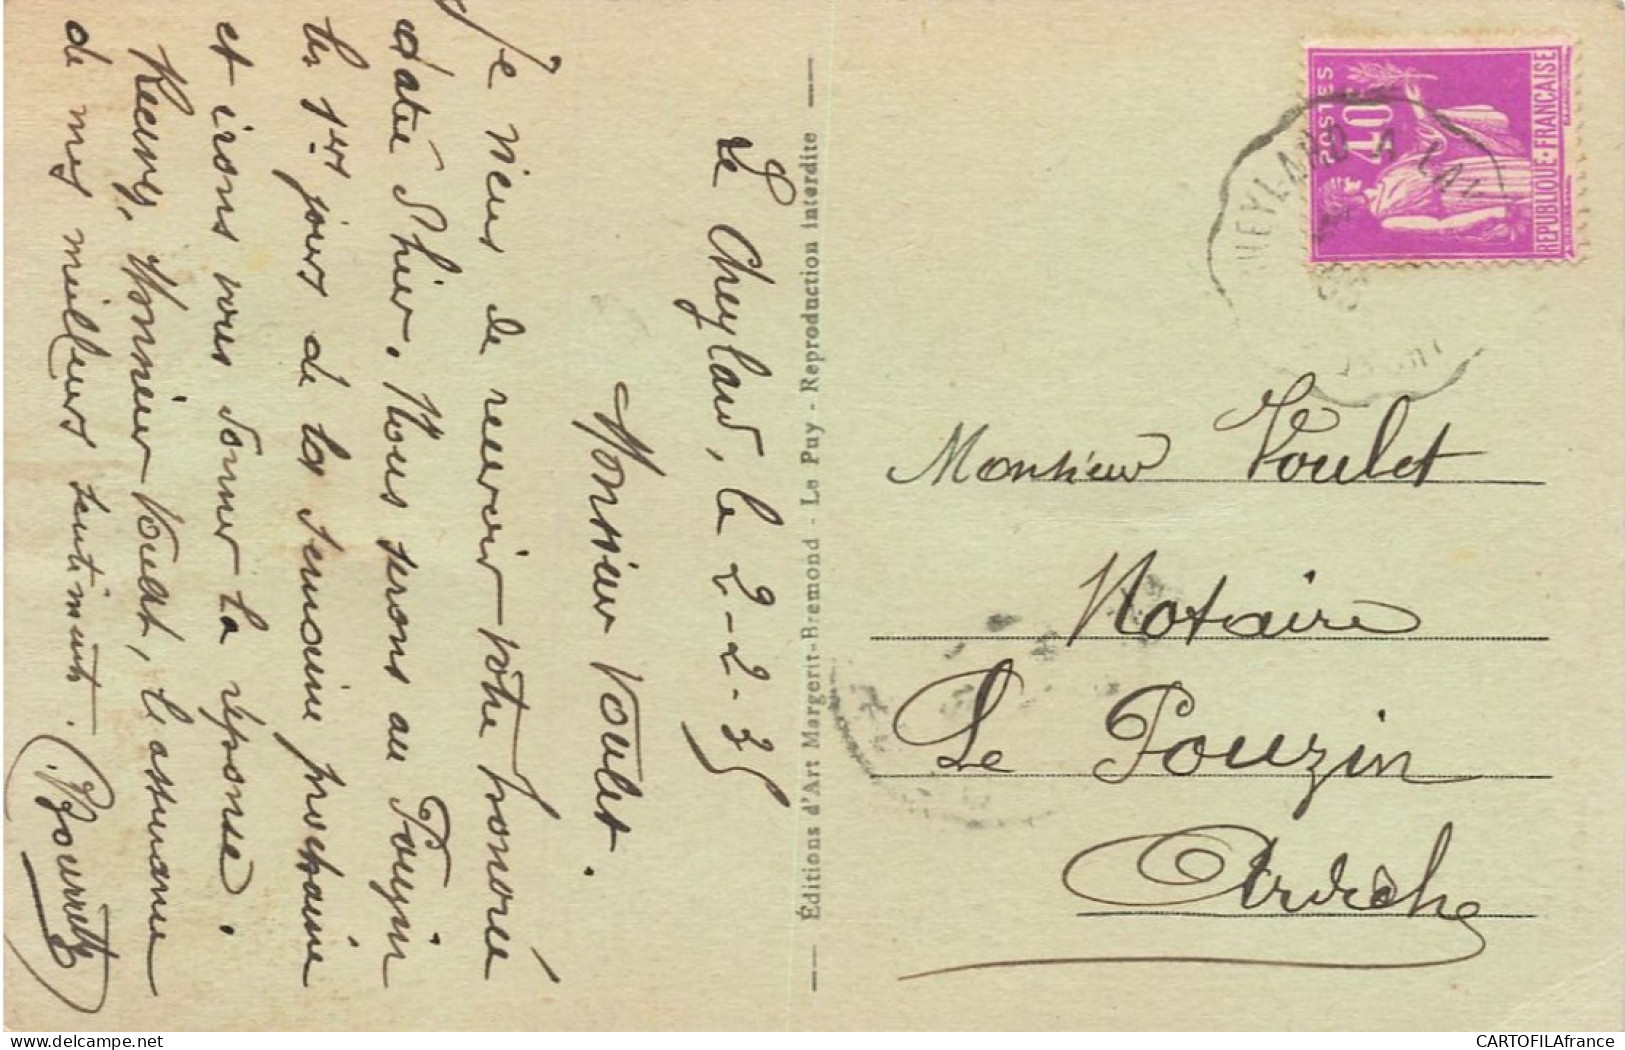 Le Cheylard, le 2-2-35
Monsieur Voulet.
Je viens de recevoir votre honorée
datée d'hier. Nous serons au Pouzin
les 1ers jours de la semaine prochaine
et irons vous donner la réponse.
Recevez, Monsieur Voulet, l'assurance
de mes meilleurs sentiments.
Bourrette
Éditions d'Art Margerit-Bremond - Le Puy - Reproduction interdite
POSTES
40c
REPUBLIQUE·FRANÇAISE
HEYLARD A LAV
Monsieur Voulet
Notaire
Le Pouzin
Ardèche
CARTOFILAfrance
delcampe.net